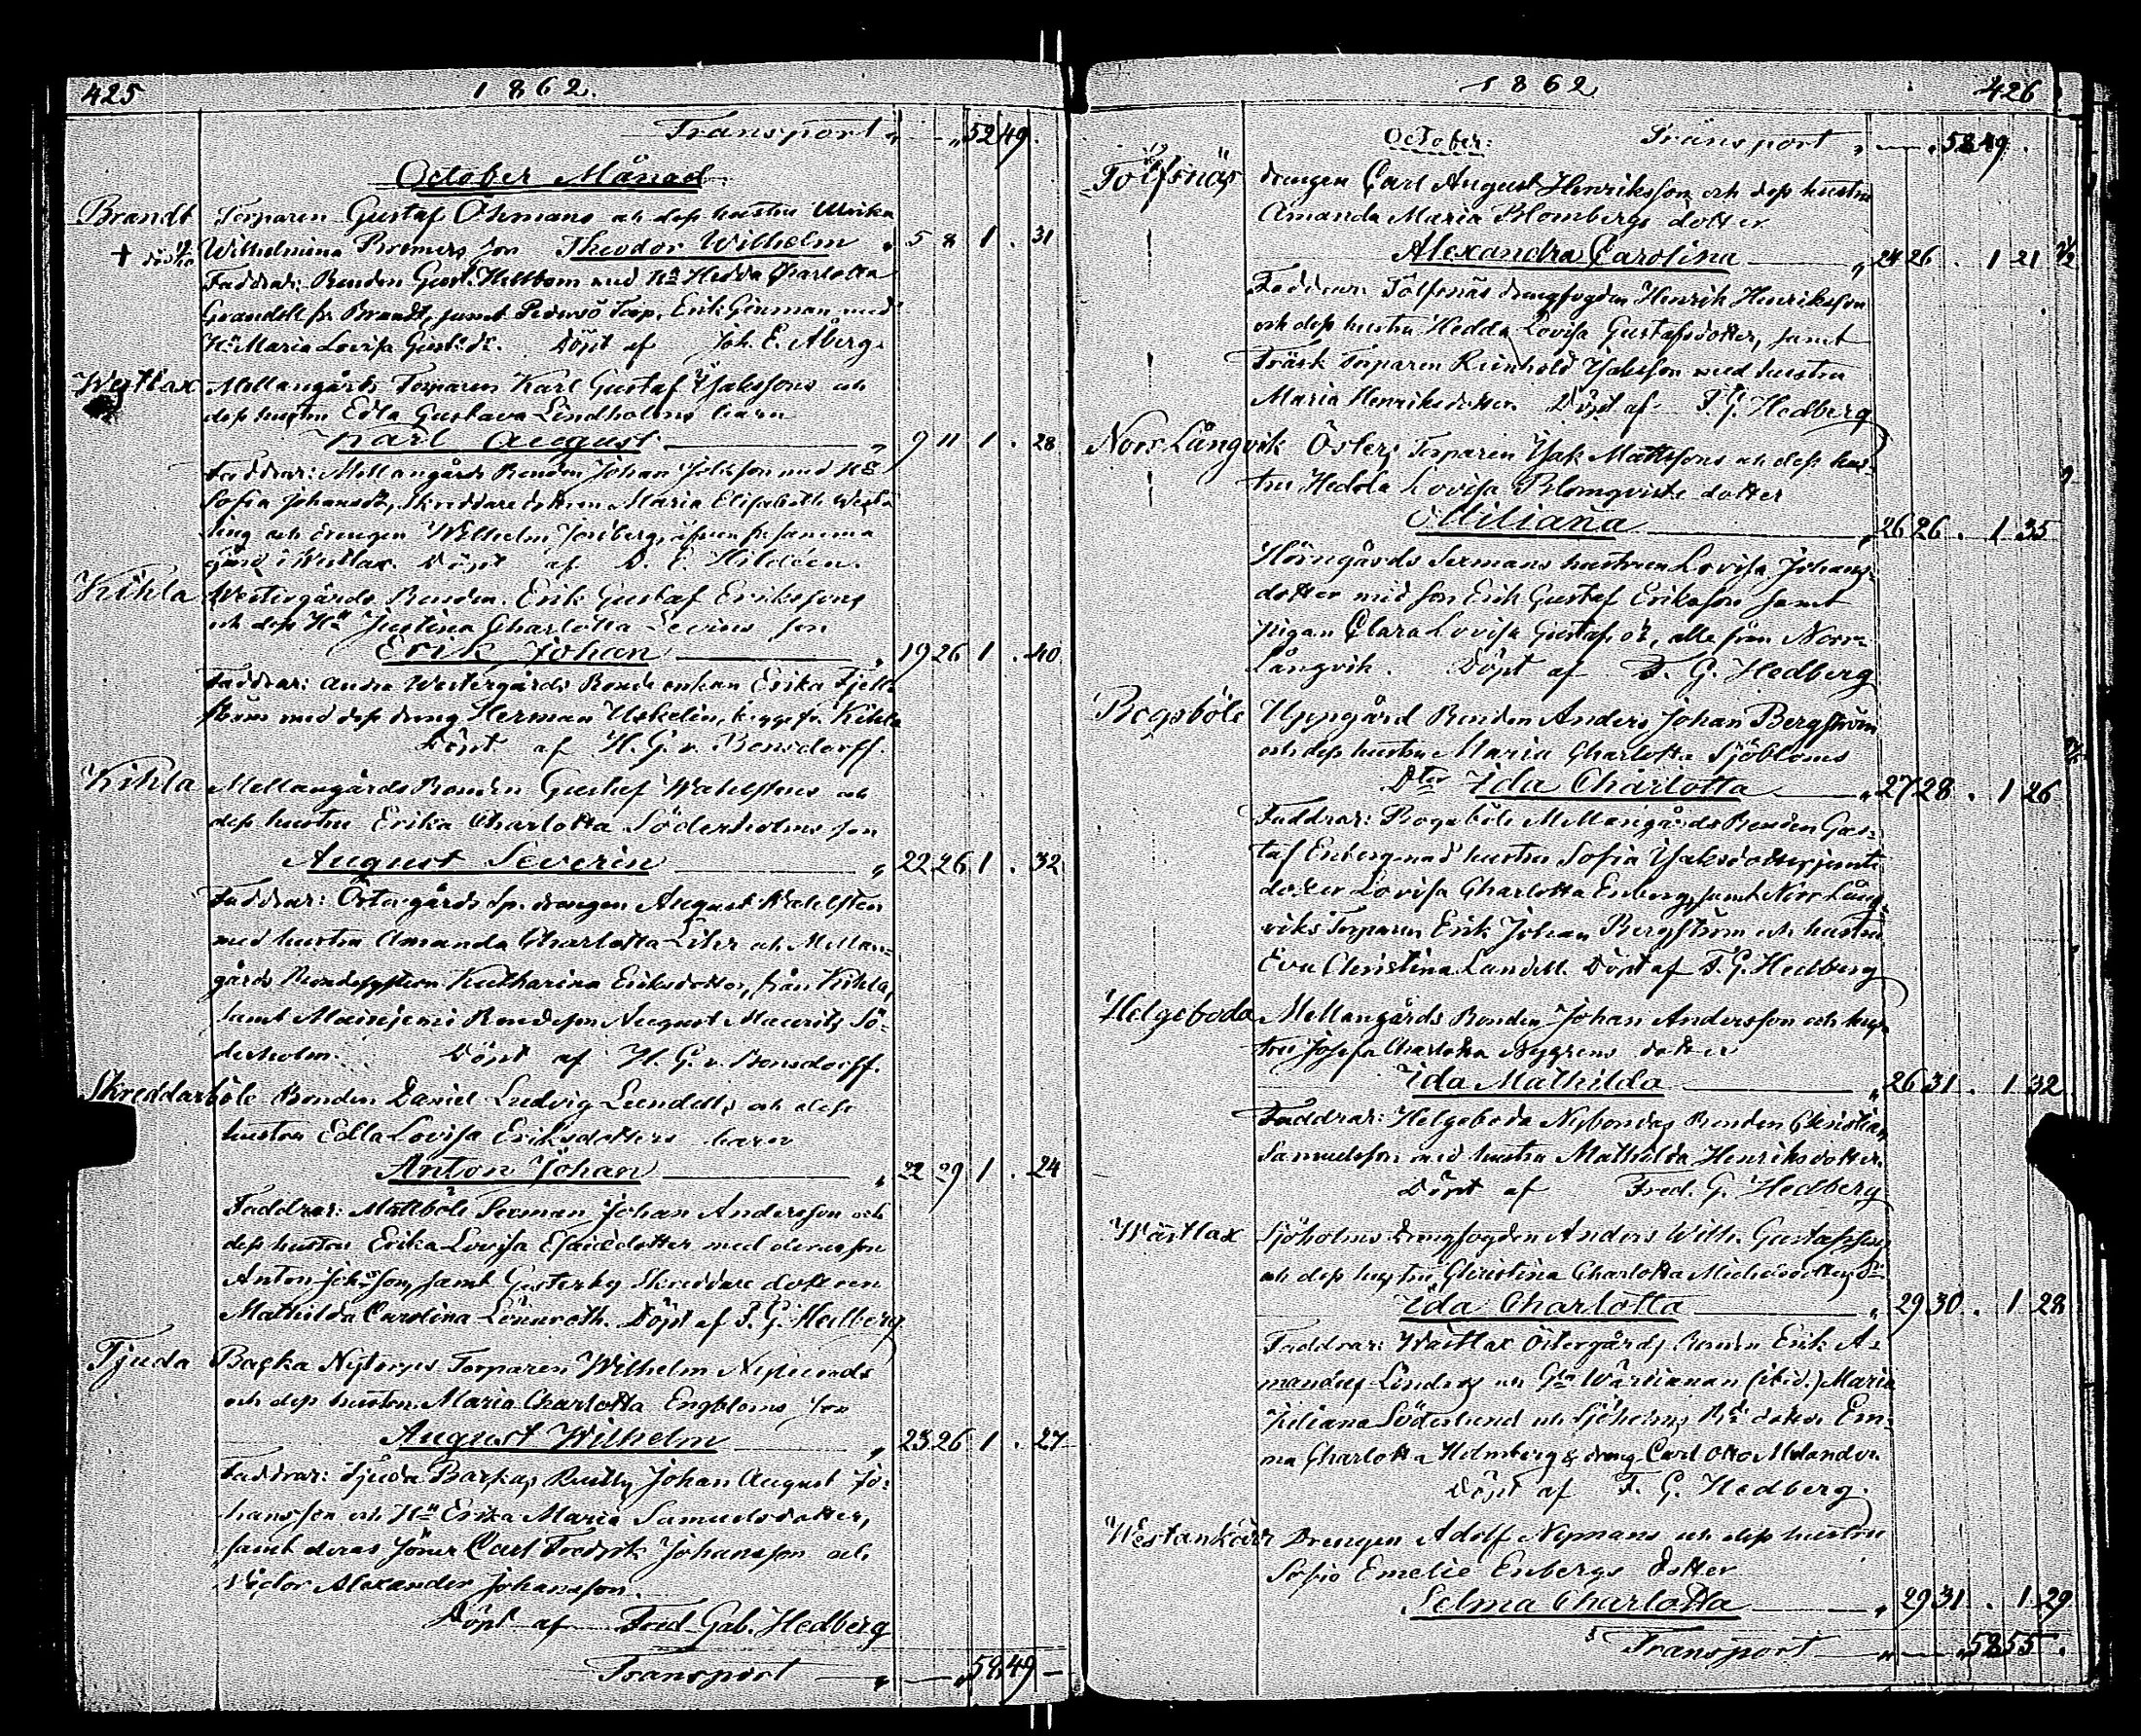 425 1862.
Transport „ — „ 52 49.
October Månad.
Brandt Torparen Gustaf Öhmans och dess hustru Ulrika
+ Wilhelmina Bremers son Theodor Wilhelm „ 5 8 1 . 31
Faddrar: Bonden Gust. Hellbom med Hu Hedda Charlotta
Grandell fr. Brandt, samt Pedersö Torp. Erik Genman med
Hu Maria Lovisa Gust.dr. Döpt af Joh. E. Åberg.
Westlax Mellangårds Torparen Karl Gustaf Isakssons och
dess hustru Edla Gustava Lindholms barn
Karl August „ 9 11 1 . 28
Faddrar: Mellangårds Bonden Johan med Hu
Sofia Johansdr, Skreddaredottren Maria Elisabeth West-
ling och drengen Wilhelm äfven fr. samma
gård i Westlax. Döpt af D. E. Hildéen.
Kihla Westergårds Bonden Erik Gustaf Erikssons
och dess Hu Justina Charlotta Levins son
Erik Johan „ 19 26 1 . 40
Faddrar: Andra Westergårds Bonde enkan Erika Fjell-
ström med dess dreng Herman Uskelin, begge fr. Kihla
Döpt af H. G. v. Bonsdorff.
Kihla Mellangårds Bonden Gustaf Wahlstens och
dess hustru Erika Charlotta Söderholms son
August Severin „ 22 26 1 . 32
Faddrar: Östergårds Sp. drengen August Wahlsten
med hustru Amanda Charlotta Lihr och Mellan-
gårds Katharina Eriksdotter, från Kihla,
samt Bondeson August Mauritz Sö-
derholm. Döpt af H. G. v. Bonsdorff.
Skreddarböle Bonden Daniel Ludvig Lundells och dess
hustru Edla Lovisa Eriksdotters barn
Anton Johan „ 22 29 1 . 24
Faddrar: Mattböle Sexman Johan Andersson och
dess hustru Erika Lovisa Esaiædotter med deras son
Anton Johsson, samt Gesterby Skreddare dottren
Mathilda Carolina Lönnroth. Döpt af F. G. Hedberg
Tjuda Backa Nytorps Torparen Wilhelm Nylunds
och dess hustru Maria Charlotta Engbloms son
August Wilhelm „ 23 26 1 . 27
Faddrar: Tjuda Backas Johan August Jo-
hansson och Hu Erika Maria Samuelsdotter,
samt deras söner Carl Fredrik Johansson och
Victor Alexander Johansson.
Döpt af Fred. Gab. Hedberg
Transport — „ — „ 58 49 —
1862 426
October: Transport „ — „ 58 49.
Tölfsnäs drengen Carl August Henriksson och dess hustru
Amanda Maria Blombergs dotter
Alexandra Carolina „ 24 26 . 1 21
Faddrar: Tölfsnäs drengfogden Henrik Henriksson
och dess hustru Hedda Lovisa Gustafsdotter, samt
Träsk Torparen Reinhold Isaksson med hustru
Maria Henriksdotter. Döpt af F. G. Hedberg
Norr Långvik Östers Torparen Isak Mattssons och dess hus-
tru Hedda Lovisa Blomqvists dotter
Miliana „ 26 26 . 1 35
Hörngårds Sexmans hustrun Lovisa Johans-
dotter med son Erik Gustaf Eriksson samt
pigan Clara Lovisa Gustafsdr, alla från Norr
Långvik. Döpt af F. G. Hedberg
Bogsböle Uppgård Bonden Anders Johan Bergström
och dess hustru Maria Charlotta Sjöbloms
Dter Ida Charlotta „ 27 28 . 1 26
Faddrar: Bogsböle Mellangårds Bonden Gus-
taf Enberg med hustru Sofia Isaksdotter jemte
dotter Lovisa Charlotta Enberg, samt Norr Lång-
viks Torparen Erik Johan Bergström och hustru
Eva Christina Lundell. Döpt af F. G. Hedberg
Helgeboda Mellangårds Bonden Johan Andersson och hus-
tru Josefa Charlotta Nygrens dotter
Ida Mathilda „ 26 31 . 1 32
Faddrar: Helgeboda Nybondas Bonden Christian
Samuelsson med hustru Mathilda Henriksdotter.
Döpt af Fred. G. Hedberg
Wästlax Sjöholms Drengfogden Anders Wilh. Gustafsson
och dess hustru Christina Charlotta Michelsdotters Dr
Ida Charlotta „ 29 30 . 1 28
Faddrar: Wästlax Östergårds Bonden Erik A-
mandus Linders och Wärdianan (ibid.) Maria
Juliana Söderlund och Sjöholms dotter Em-
ma Charlotta Holmberg & dreng Carl Otto Melander.
Döpt af F. G. Hedberg.
Westankärr Drengen Adolf Nymans och dess hustru
Sofia Emelie Enbergs dotter
Selma Charlotta „ 29 31 . 1 29
Transport „ — „ 58 55.